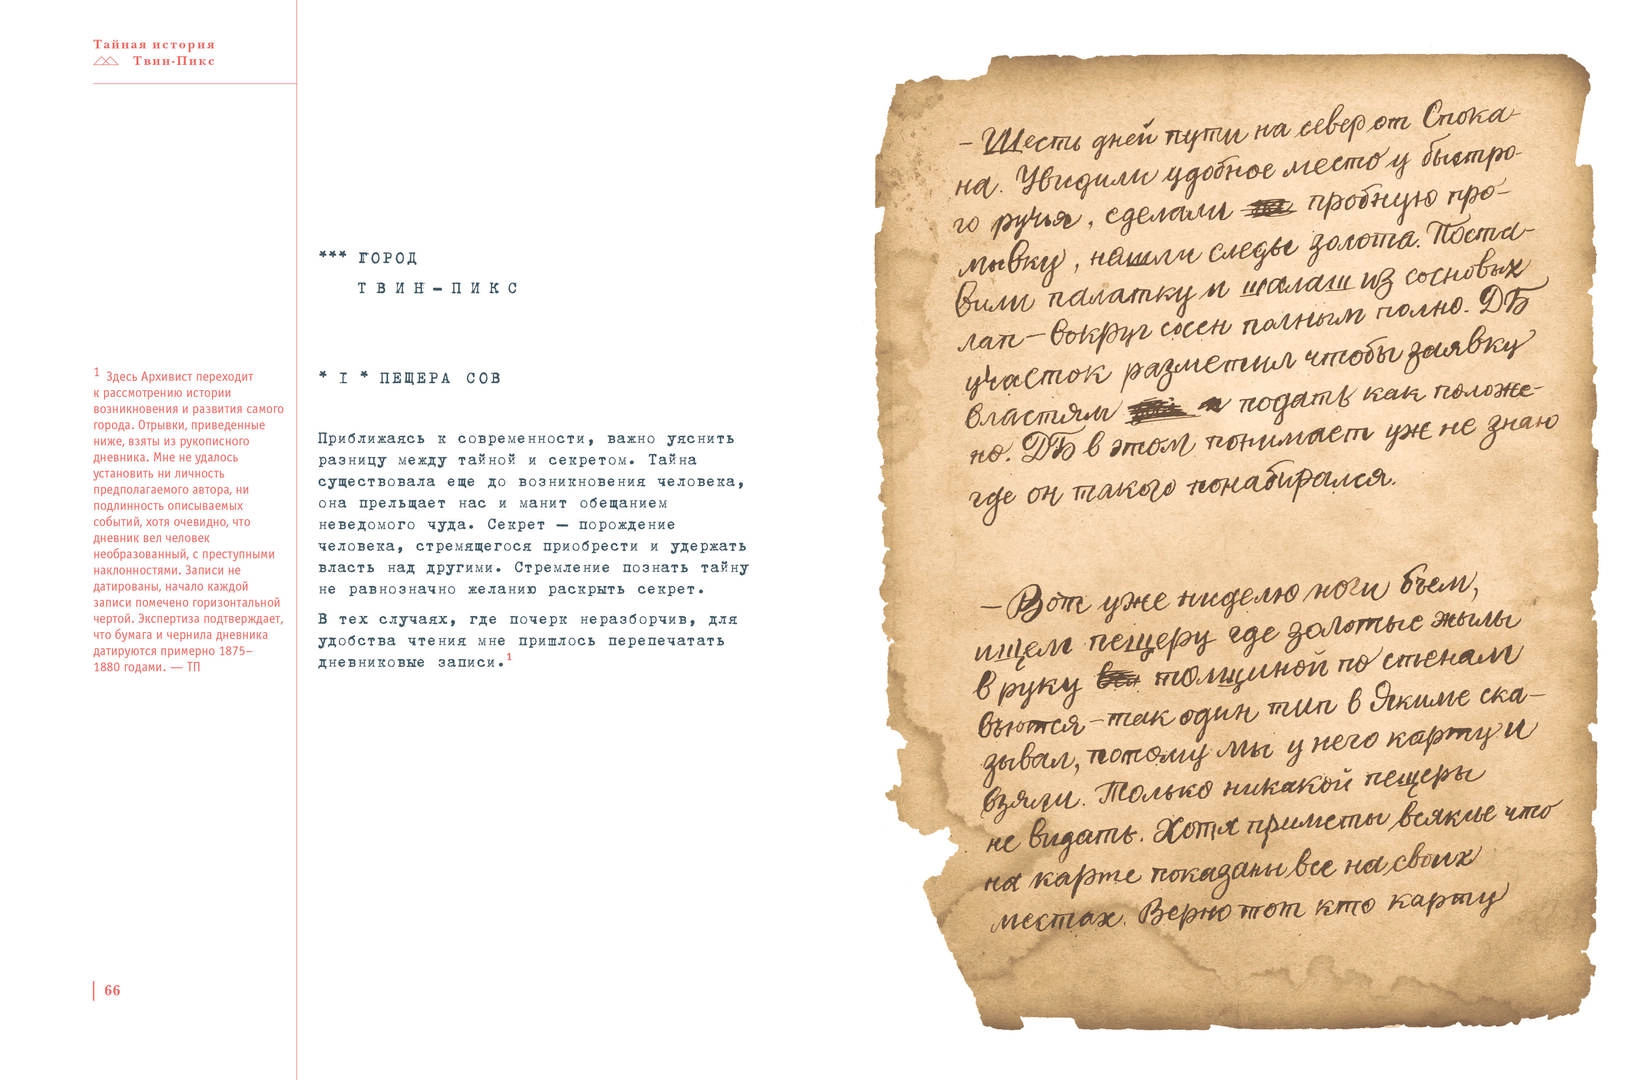 Тайная история
Твин-Пикс
*** ГОРОД
ТВИН-ПИКС
* I * ПЕЩЕРА СОВ
Приближаясь к современности, важно уяснить
разницу между тайной и секретом. Тайна
существовала еще до возникновения человека,
она прельщает нас и манит обещанием
неведомого чуда. Секрет — порождение
человека, стремящегося приобрести и удержать
власть над другими. Стремление познать тайну
не равнозначно желанию раскрыть секрет.
В тех случаях, где почерк неразборчив, для
удобства чтения мне пришлось перепечатать
дневниковые записи.1
1 Здесь Архивист переходит
к рассмотрению истории
возникновения и развития самого
города. Отрывки, приведенные
ниже, взяты из рукописного
дневника. Мне не удалось
установить ни личность
предполагаемого автора, ни
подлинность описываемых
событий, хотя очевидно, что
дневник вел человек
необразованный, с преступными
наклонностями. Записи не
датированы, начало каждой
записи помечено горизонтальной
чертой. Экспертиза подтверждает,
что бумага и чернила дневника
датируются примерно 1875–
1880 годами. — ТП
66
– Шесть дней пути на север от Спока-
на. Увидили удобное место у быстро-
го ручья, сделали пробную про-
мывку, нашли следы золота. Поста-
вили палатку и шалаш из сосновых
лап – вокруг сосен полным полно. ДБ
участок разметил чтобы заявку
властям подать как положе-
но. ДБ в этом понимает уже не знаю
где он такого понабирался.
– Вот уже ниделю ноги бьем,
ищем пещеру где золотые жылы
в руку толщиной по стенам
вьются – так один тип в Якиме ска-
зывал, потому мы у него карту и
взяли. Только никакой пещеры
не видать. Хотя приметы всякие что
на карте показаны все на своих
местах. Верно тот кто карту